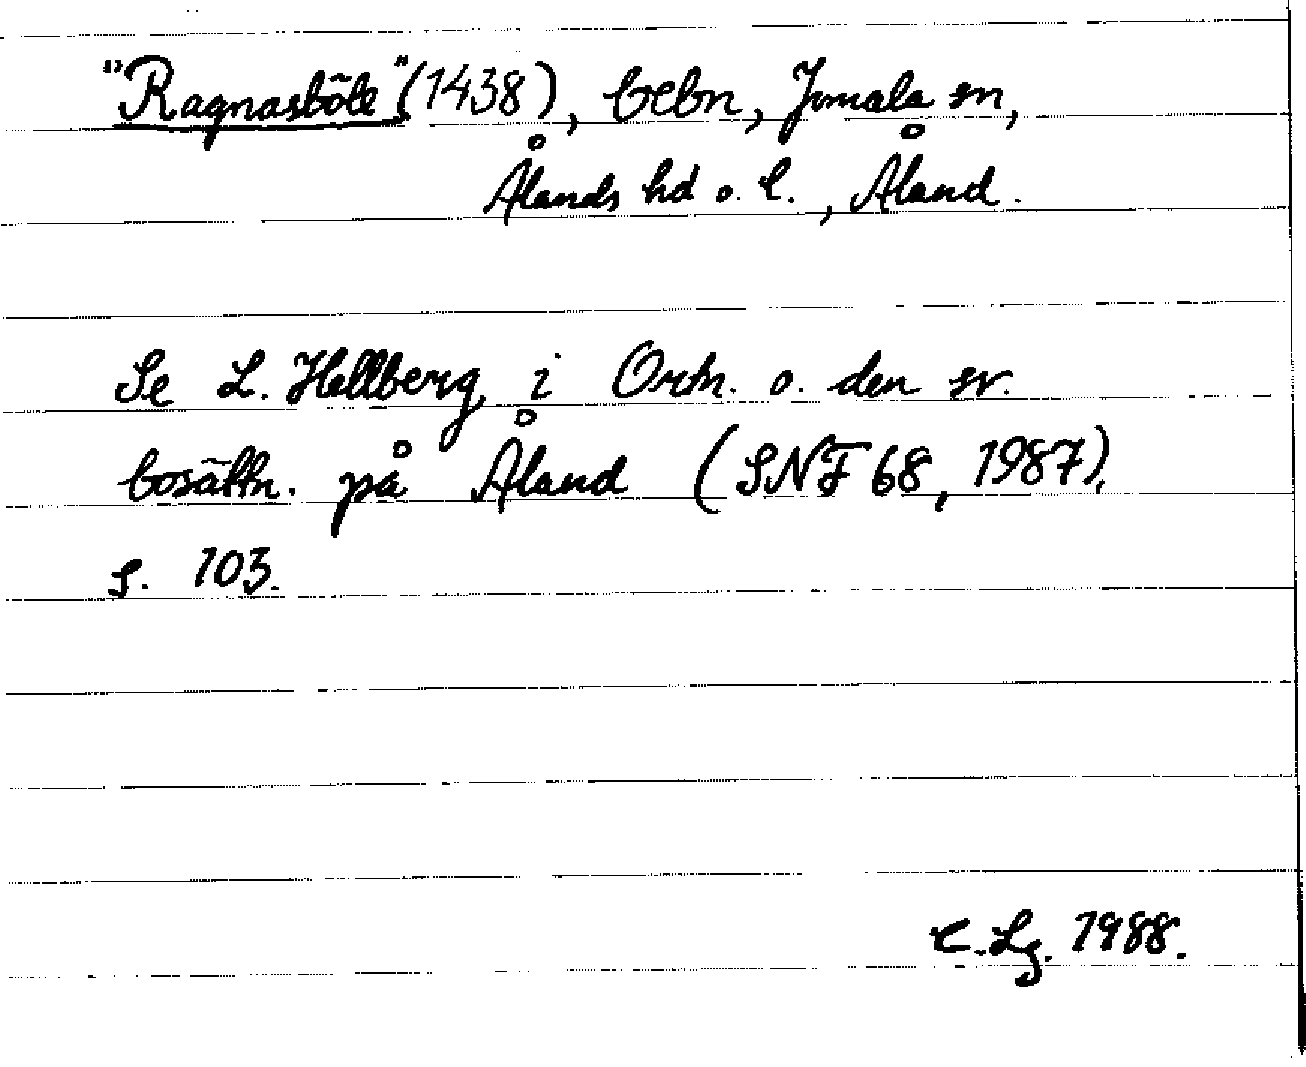 "Ragnasböle" (1438), bebn, Jomala sn,
Ålands hd o. l., Åland.
Se L. Hellberg i Ortn. o. den sv.
bosättn. på Åland (SNF 68, 1987),
s. 103.
C. Lg. 1988.